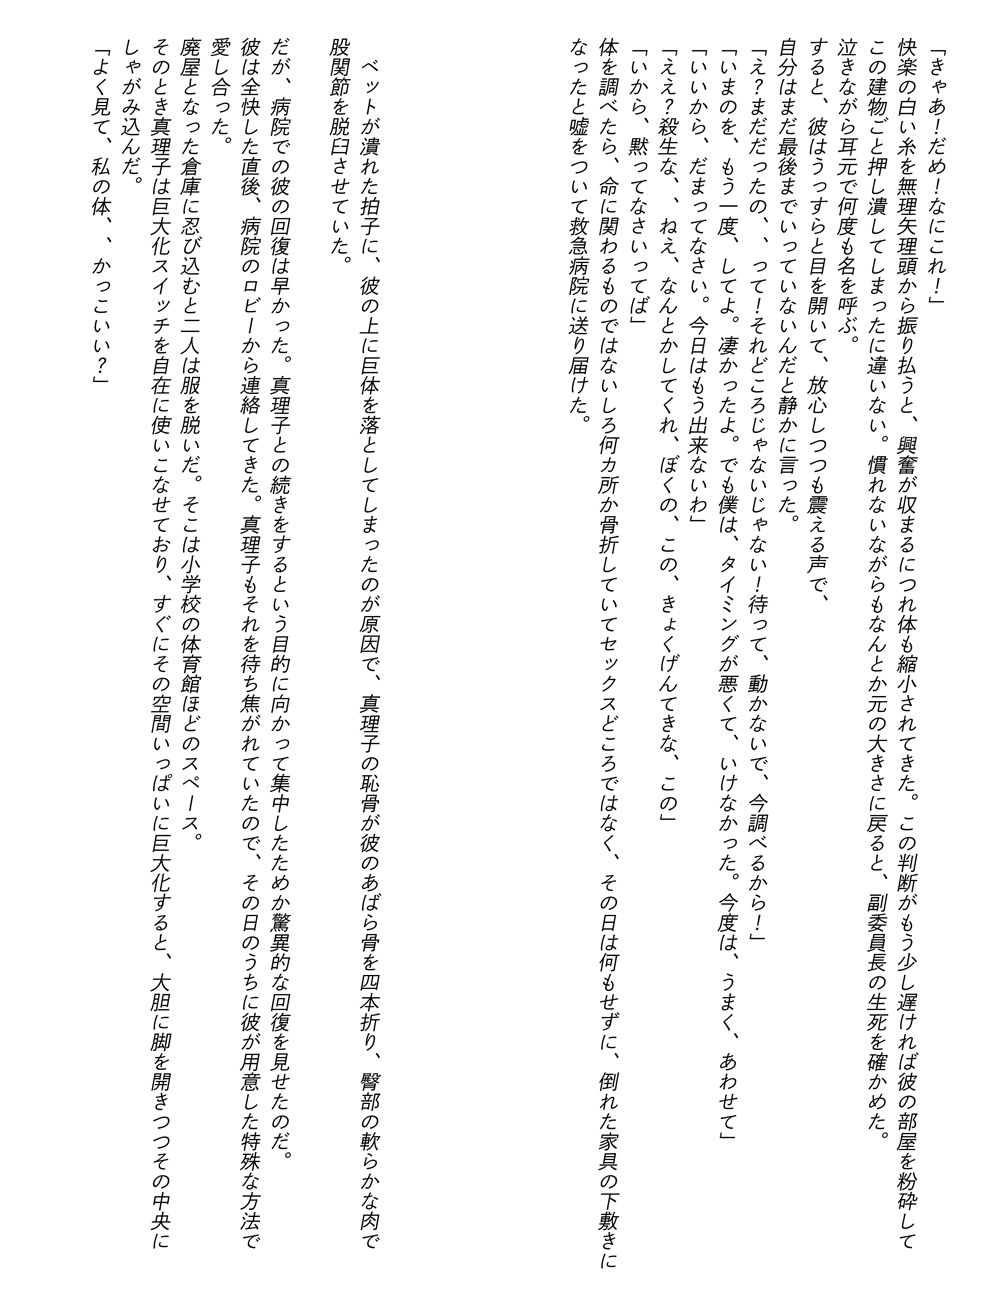 「きゃあ！だめ！なにこれ！」
快楽の白い糸を無理矢理頭から振り払うと、興奮が収まるにつれ体も縮小されてきた。この判断がもう少し遅ければ彼の部屋を粉砕して
この建物ごと押し潰してしまったに違いない。慣れないながらもなんとか元の大きさに戻ると、副委員長の生死を確かめた。
泣きながら耳元で何度も名を呼ぶ。
すると、彼はうっすらと目を開いて、放心しつつも震える声で、
自分はまだ最後までいっていないんだと静かに言った。
「え？まだだったの、、って！それどころじゃないじゃない！待って、動かないで、今調べるから！」
「いまのを、もう一度、してよ。凄かったよ。でも僕は、タイミングが悪くて、いけなかった。今度は、うまく、あわせて」
「いいから、だまってなさい。今日はもう出来ないわ」
「ええ？殺生な、、ねえ、なんとかしてくれ、ぼくの、この、きょくげんてきな、この」
「いから、黙ってなさいってば」
体を調べたら、命に関わるものではないしろ何カ所か骨折していてセックスどころではなく、その日は何もせずに、倒れた家具の下敷きに
なったと嘘をついて救急病院に送り届けた。
ベットが潰れた拍子に、彼の上に巨体を落としてしまったのが原因で、真理子の恥骨が彼のあばら骨を四本折り、臀部の軟らかな肉で
股関節を脱臼させていた。
だが、病院での彼の回復は早かった。真理子との続きをするという目的に向かって集中したためか驚異的な回復を見せたのだ。
彼は全快した直後、病院のロビーから連絡してきた。真理子もそれを待ち焦がれていたので、その日のうちに彼が用意した特殊な方法で
愛し合った。
廃屋となった倉庫に忍び込むと二人は服を脱いだ。そこは小学校の体育館ほどのスペース。
そのとき真理子は巨大化スイッチを自在に使いこなせており、すぐにその空間いっぱいに巨大化すると、大胆に脚を開きつつその中央に
しゃがみ込んだ。
「よく見て、私の体、、かっこいい？」